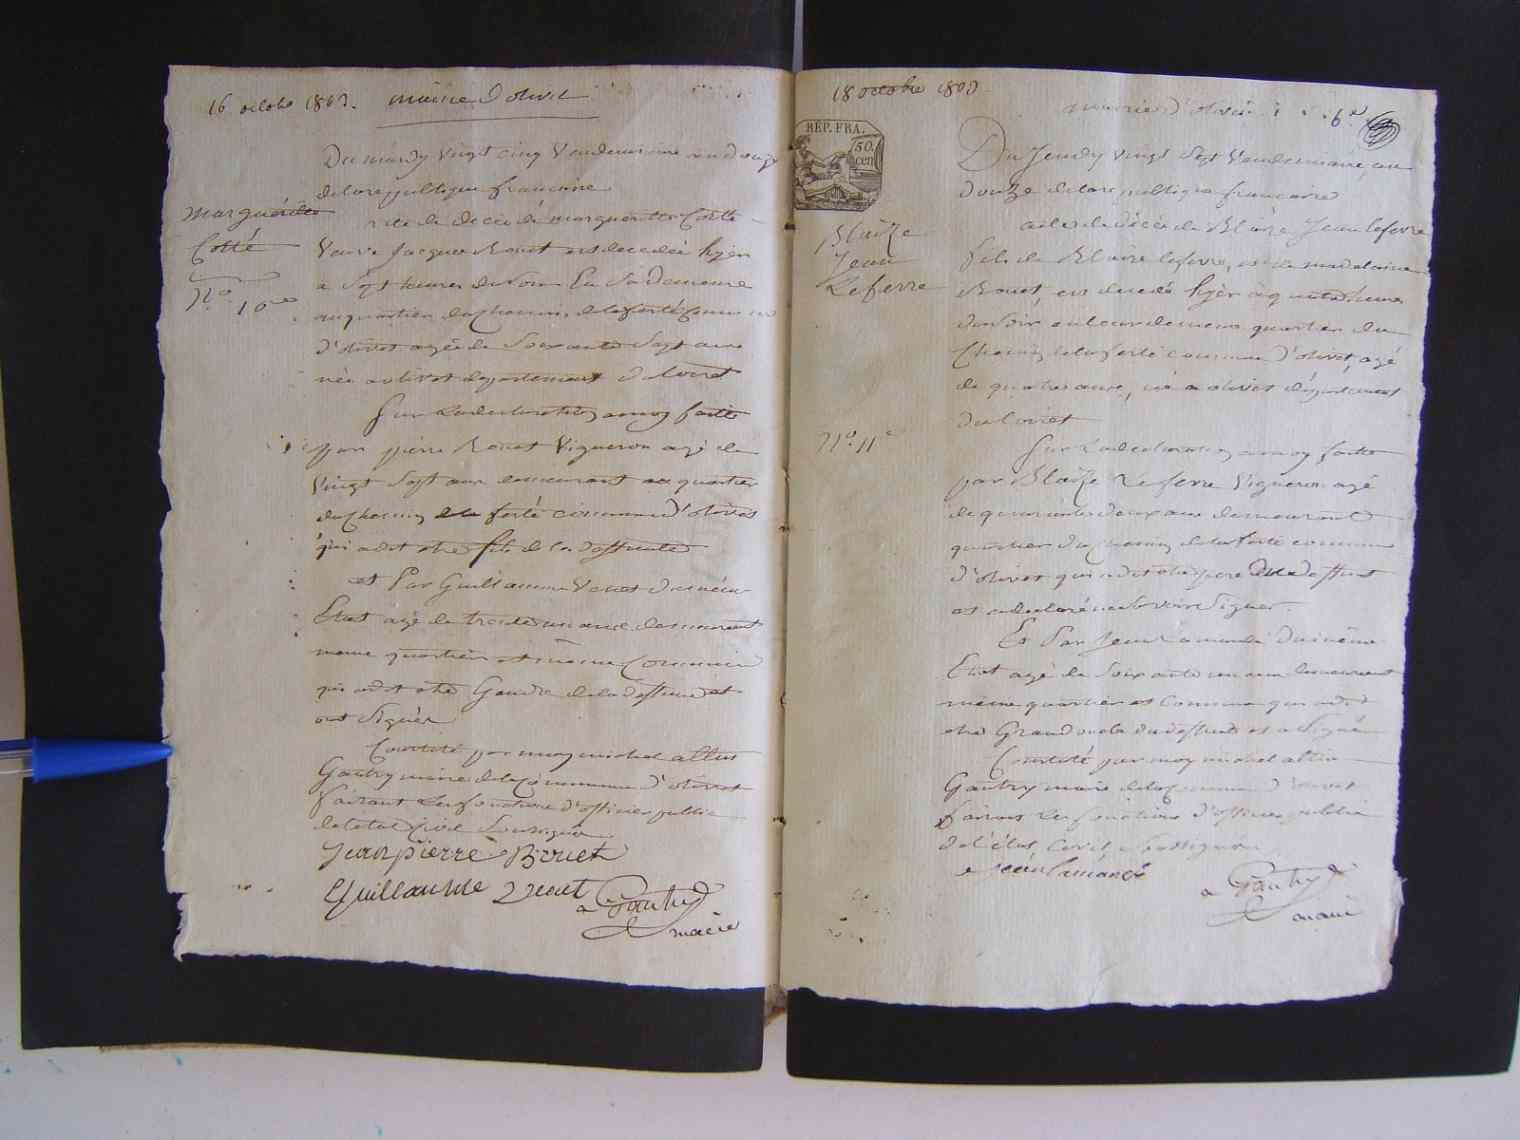 16 octobre 1803. Mairie d'olivet
Du mardy vingt cinq Vendemiaire an douze
de la republique francaise
Marguéritte
Cotté
N.o 10e
acte de decès de margueritte Cotté
Veuve Jacques Rouet est decedée hyer
a Sept heures du Soir En Sa Demeure
au quartier du Chemin de la ferté Commune
d'olivet agée de Soixante Sept ans
née a olivet departement du Loiret
Sur La declaration a moy faitte
par pierre Rouet Vigneron agé de
Vingt Sept ans demeurant au quartier
du Chemin de la ferté commune d'olivet
qui a dit etre fils de la deffunte
et Par Guillaume Venet du même
Etat agé de trente un ans demeurant
meme quartier et meme Commune
qui a dit etre Gendre de la deffunte et
ont Signér
Constaté par moy michel
Gautry maire de la Commune d'olivet
faisant Les fonctions d'officier public
de letat Civil Soussigné
Jean pierre Rouet
Guillaume Venet Gautry
maire
18 octobre 1803
Mairie d'olivet 6e
REP. FRA.
50.
cen
Du Jeudy vingt Sept Vendemiaire, an
Douze de la republique francaise
Blaize
Jean
Lefevre
N.o 11e
acte de décès de Blaize Jean lefevre
fils de Blaize lefevre, et de madelaine
Rouet, est decedé hyèr à quatre heures
du soir en leur demeure quartier du
Chemin de la ferté commune d'olivet, agé
de quatre ans, né a olivet département
du Loiret
Sur La declaration a moy faitte
par Blaize Lefevre Vigneron agé
de quarante deux ans demeurant
quartier du Chemin de la ferté commune
d'olivet qui a dit etre pere du deffunt
et a declaré ne scavoir Signer.
Et Par Jean Lamandé Du même
Etat agé de Soixante un ans demeurant
même quartier et Commune qui a dit
etre Grand oncle du deffunt et a Signé
Constaté par moy michel
Gautry maire de la Commune d'olivet
faisant Les fonctions d'officier public
de l'état Civil, Soussigné
Jean lamandé
Gautry
maire